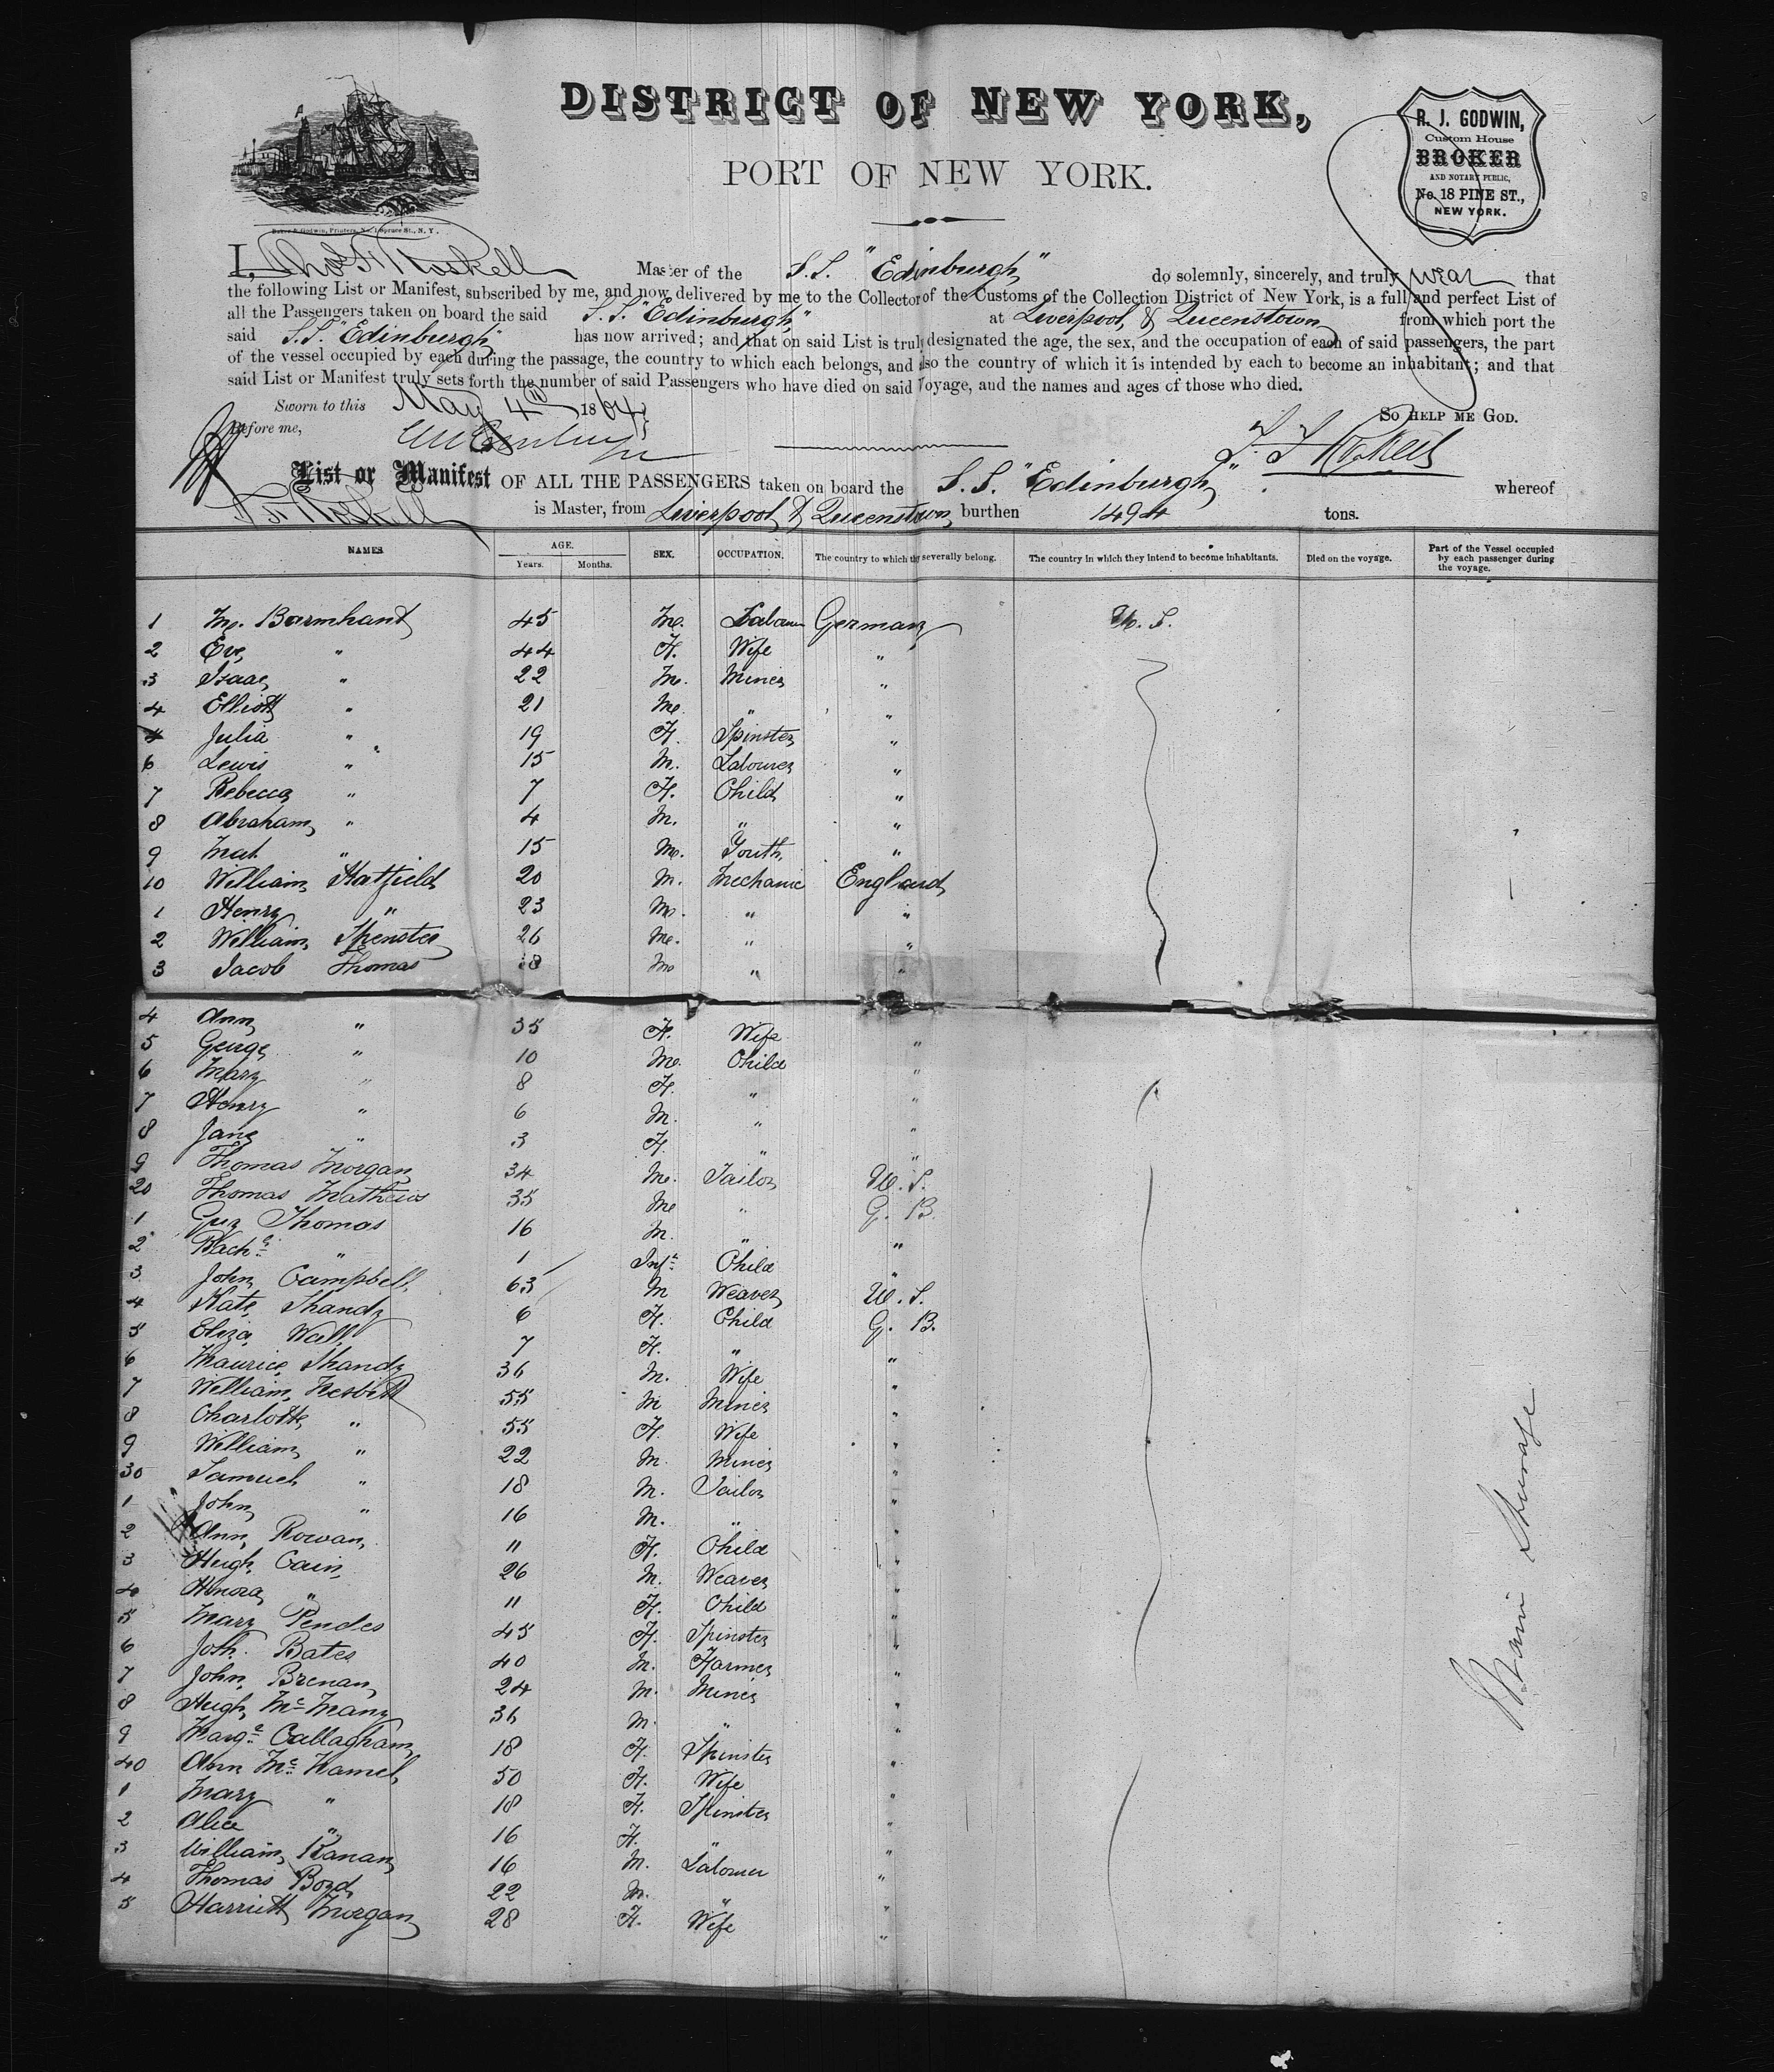 DISTRICT OF NEW YORK,
PORT OF NEW YORK.
R. J. GODWIN,
Custom House
BROKER
AND NOTARY PUBLIC,
No. 18 PINE ST.,
NEW YORK.
Baker & Godwin, Printers, No. 1 Spruce St., N. Y.
I, Roskell Master of the S.S. "Edinburgh" do solemnly, sincerely, and truly swear that
the following List or Manifest, subscribed by me, and now delivered by me to the Collector of the Customs of the Collection District of New York, is a full and perfect List of
all the Passengers taken on board the said S.S. "Edinburgh," at Liverpool & Queenstown from which port the
said S.S. "Edinburgh" has now arrived; and that on said List is truly designated the age, the sex, and the occupation of each of said passengers, the part
of the vessel occupied by each during the passage, the country to which each belongs, and also the country of which it is intended by each to become an inhabitant; and that
said List or Manifest truly sets forth the number of said Passengers who have died on said Voyage, and the names and ages of those who died.
Sworn to this May 4th 1864 So HELP ME GOD.
Before me, Roskell
List or Manifest OF ALL THE PASSENGERS taken on board the S.S. "Edinburgh" whereof
Roskell is Master, from Liverpool & Queenstown burthen 1494 tons.
NAMES AGE. Years. Months. SEX. OCCUPATION. The country to which they severally belong. The country in which they intend to become inhabitants. Died on the voyage. Part of the Vessel occupied by each passenger during the voyage.
1 Barmhant 45 M. Labourer Germany U. S.
2 Eve " 44 F. Wife "
3 Isaac " 22 M. Miner "
4 Elliott " 21 M. " "
Julia " 19 F. Spinster "
6 Lewis " 15 M. Labourer "
7 Rebecca " 7 F. Child "
8 Abraham " 4 M. " "
9 Mat " 15 M. Youth "
10 William Hatfield 20 M. Mechanic England
1 Henry " 23 M. " "
2 William Spenster 26 M. " "
3 Jacob Thomas 38 M " "
4 Ann " 35 F. Wife "
5 George " 10 M. Child "
6 Mary " 8 F. " "
7 Henry " 6 M. " "
8 Jane " 3 F. " "
9 Thomas Morgan 34 M. Tailor U. S.
20 Thomas Mathews 35 M " G. B.
1 Guy Thomas 16 M. " "
2 Rach " 1 Inft Child "
3 John Campbell 63 M Weaver U. S.
4 Kate Shandy 6 F. Child G. B.
5 Eliza Wall 7 F. " "
6 Maurice Shandy 36 M. Wife "
7 William Nesbitt 55 M Miner "
8 Charlotte " 55 F. Wife "
9 William " 22 M. Miner "
30 Samuel " 18 M. Tailor "
1 John " 16 M. " "
2 Ann Rowan 11 F. Child "
3 Hugh Cain 26 M. Weaver "
4 Honora " 11 F. Child "
5 Mary Pendes 45 F. Spinster "
6 Josh. Bates 40 M. Farmer "
7 John Brenan 24 M. Miner "
8 Hugh McMany 36 M. " "
9 Margt Callagham 18 F. Spinster "
40 Ann McHamel 50 F. Wife "
1 Mary " 18 F. Spinster "
2 Alice " 16 F. " "
3 William Kanan 16 M. Labourer "
4 Thomas Boyd 22 M. " "
5 Harriett Morgan 28 F. Wife "
Main Steerage